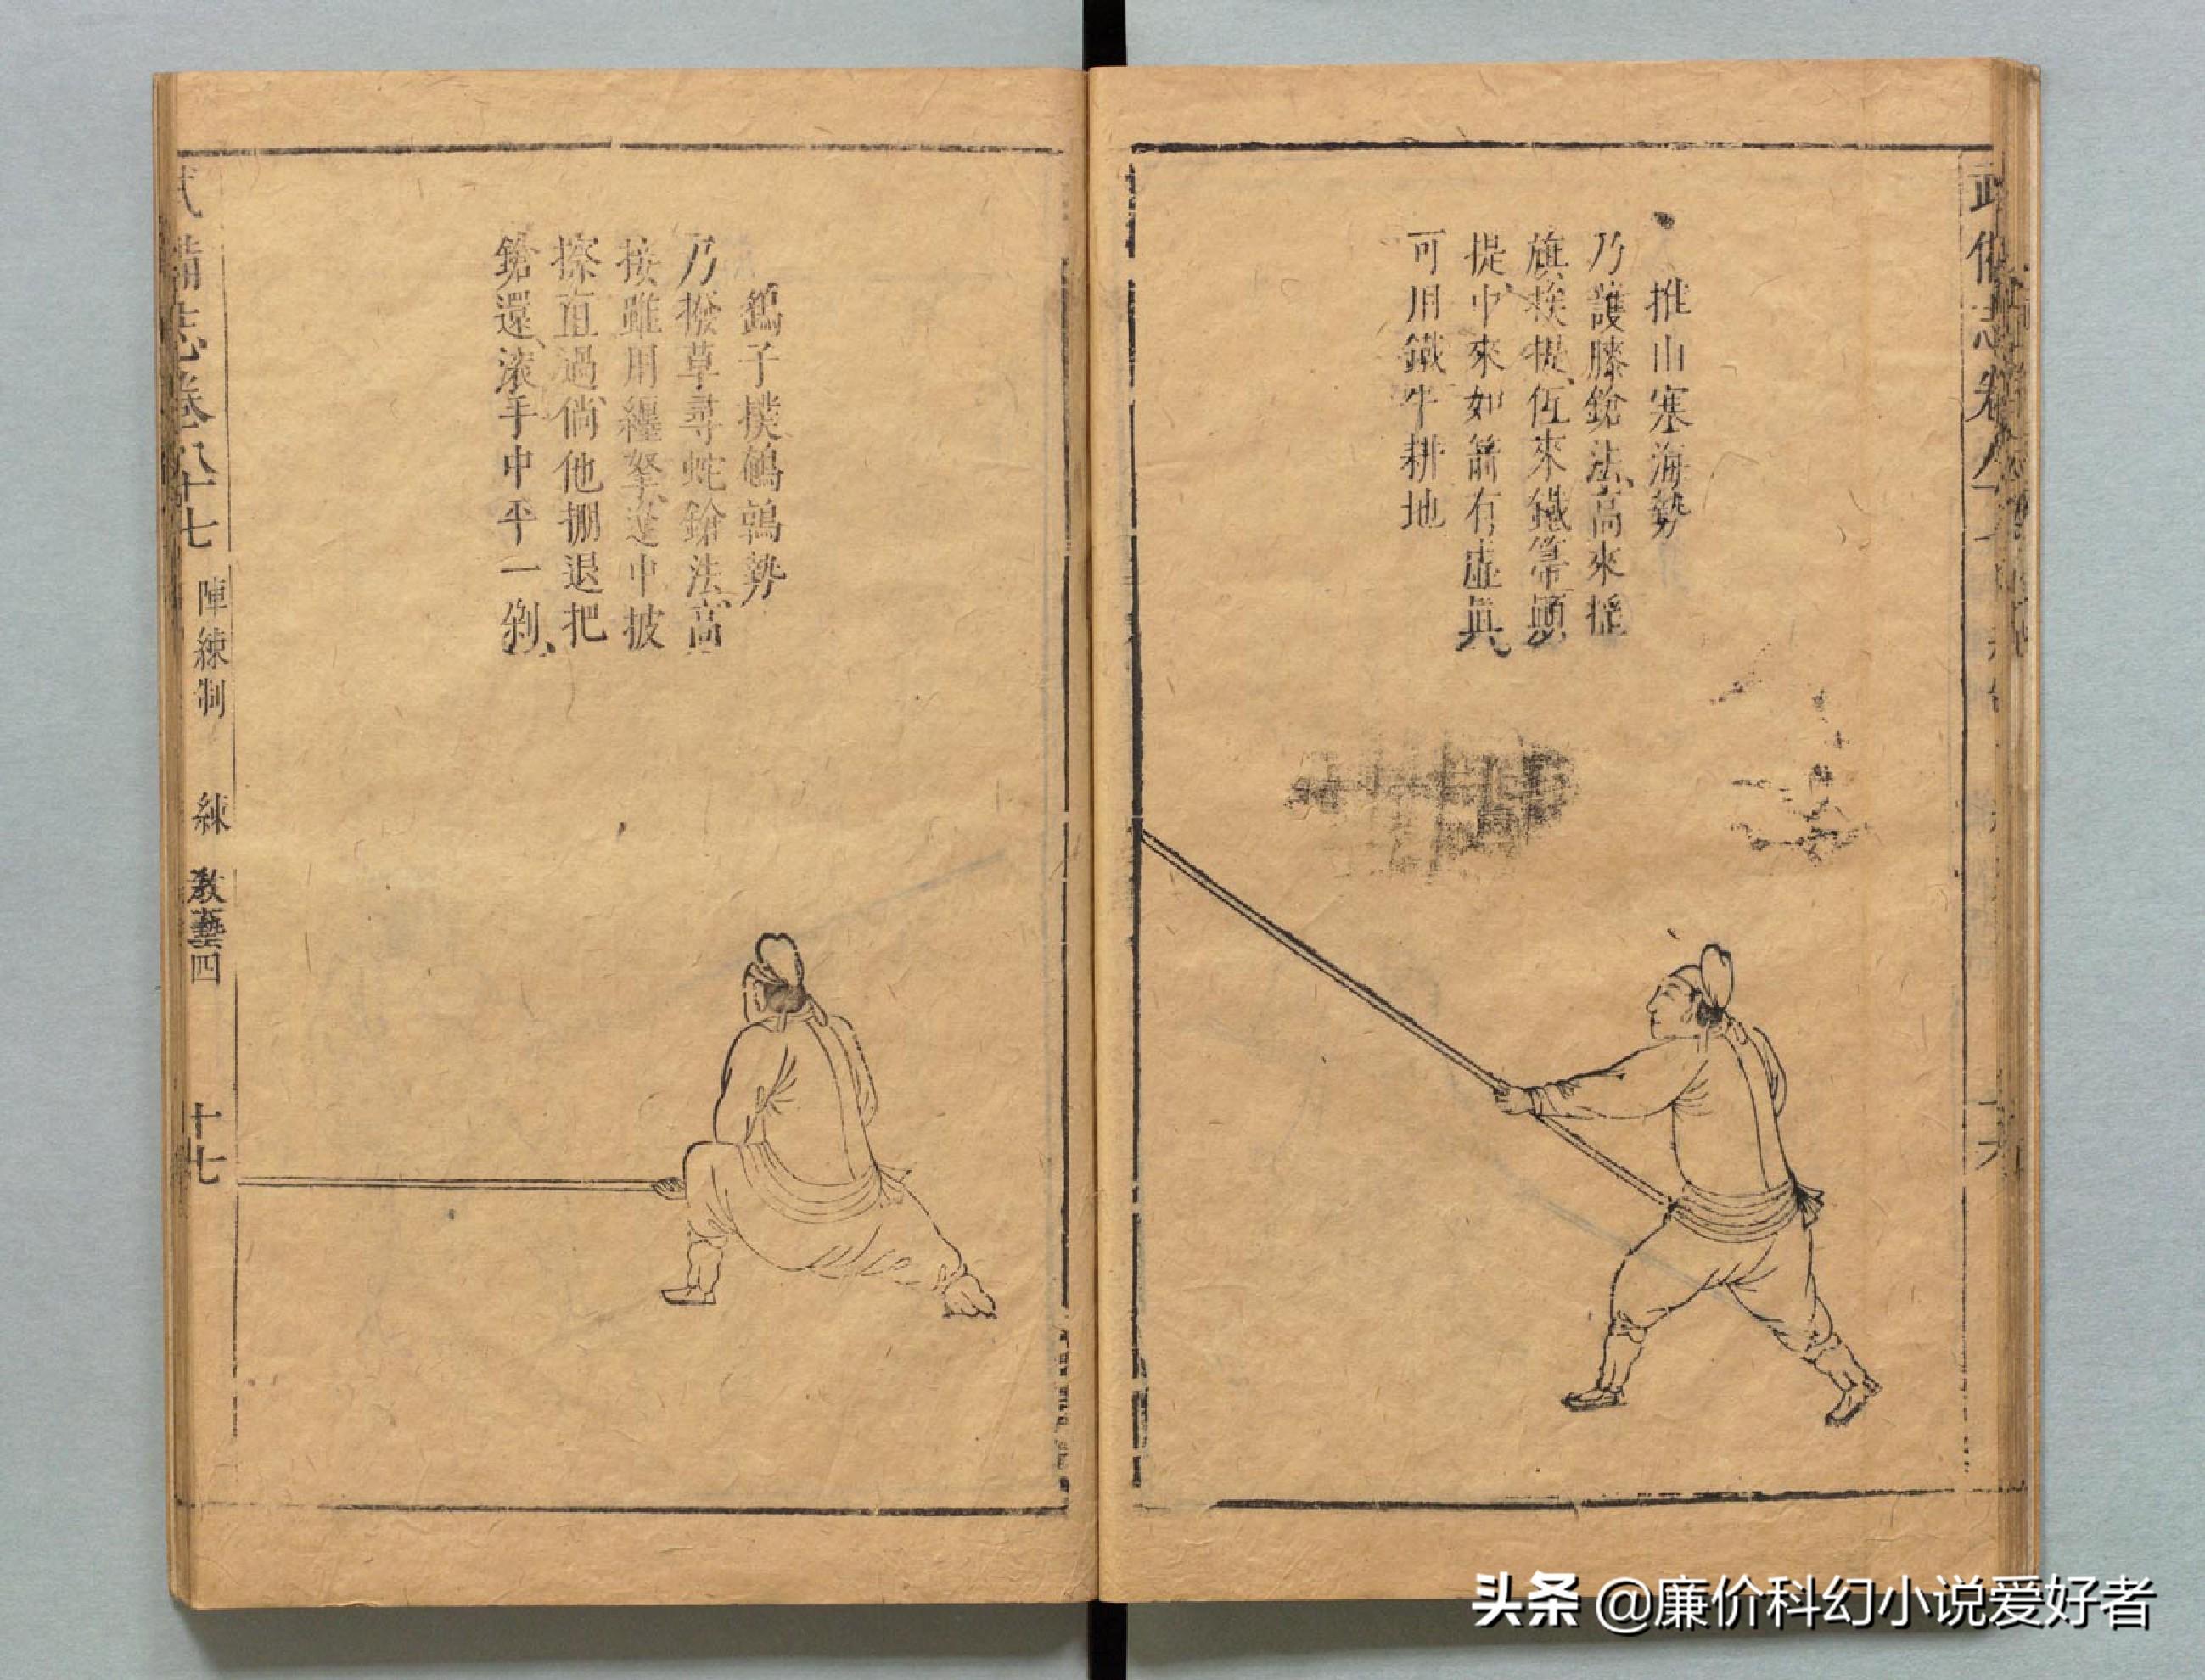 武備志卷八
推山塞海勢
乃護膝鎗法高來搖
旗挨捉低來鐵箒顛
提中來如箭有虛真
可用鐵牛耕地
鷂子撲鵪鶉勢
乃撥草尋蛇鎗法高
接雖用纏拏逢中披
擦直過倘他掤退把
鎗還滚手中平一剁
武備志卷八十七 陣練制 練 教藝四 十七
头条 @廉价科幻小说爱好者